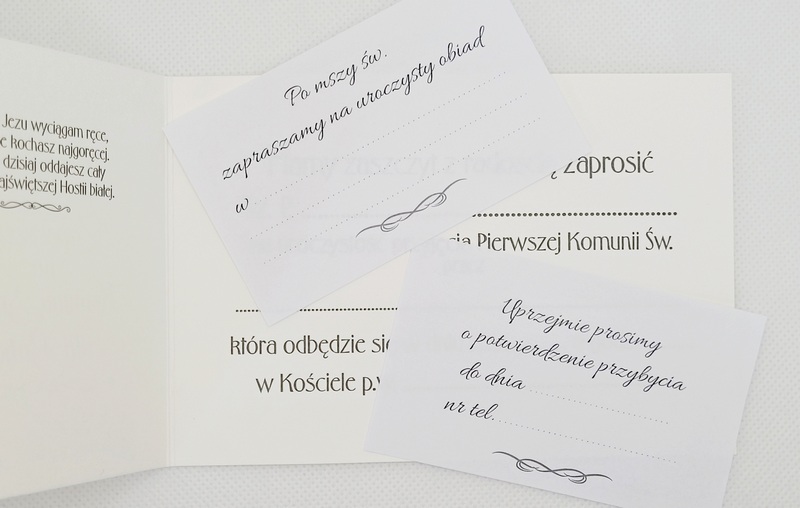 Jezu wyciągam ręce,
kochasz najgoręcej.
dzisiaj oddajesz cały
Hostii białej.
Po mszy św.
zapraszamy na uroczysty obiad
w
zaprosić
Pierwszej Komunii Św.
która odbędzie się
w Kościele p.w
Uprzejmie prosimy
o potwierdzenie przybycia
do dnia
nr tel.